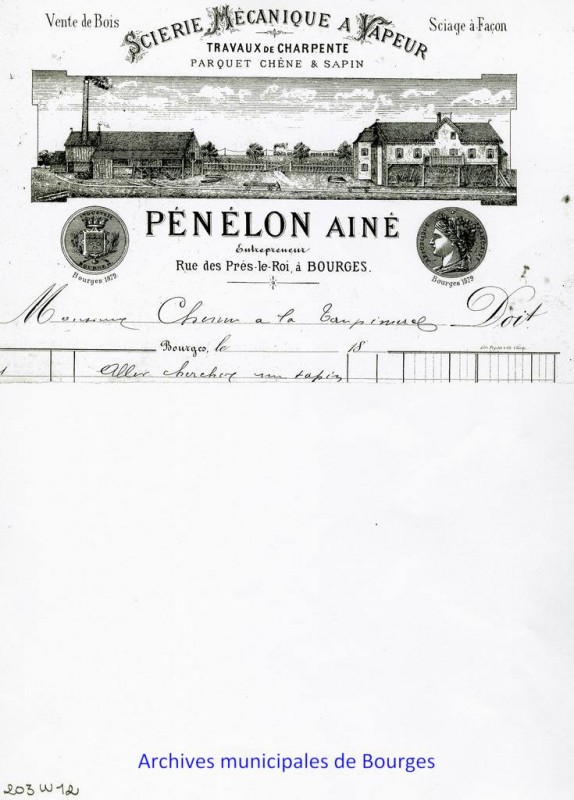 Vente de Bois
SCIERIE MÉCANIQUE A VAPEUR
Sciage à Façon
TRAVAUX DE CHARPENTE
PARQUET CHÊNE & SAPIN
PÉNÉLON AINÉ
Entrepreneur
Rue des Prés-le-Roi, à BOURGES.
Bourges 1879.
Bourges 1879
Monsieur a la Doit
Bourges, le 18
Aller chercher un sapin
Archives municipales de Bourges
203 W 12